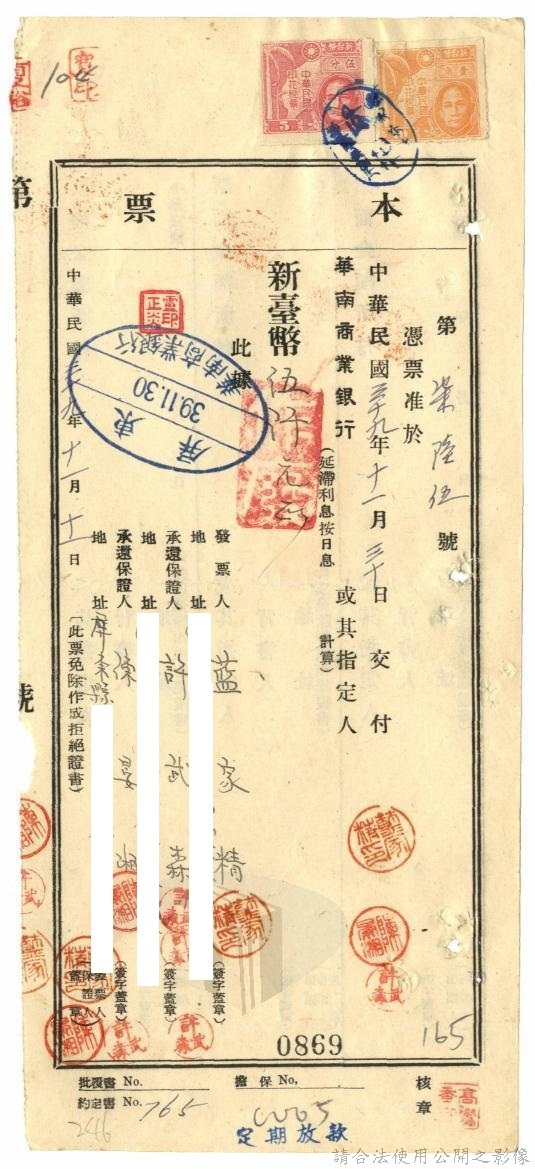 104
新台幣
伍分
中華民國
印花稅票
5
新台幣
壹角
中華民國
印花稅票
本票
第柒陸伍號
憑票准於
中華民國三十九年十一月三十日交付
華南商業銀行 或其指定人
(延滯利息按日息 計算)
新臺幣伍仟元正
此據
發票人 藍家精 (簽字蓋章)
地址
承還保證人 許武森 (簽字蓋章)
地址
承還保證人 陳晏湘 (簽字蓋章)
地址 屏東縣
中華民國三十九年十一月十一日
〔此票免除作成拒絕證書〕
發票人
保證人
蓋章
華南商業銀行
39.11.30
屏東
第
號
0869
165
批覆書 No.
約定書 No. 765
246
擔保 No,
定期放款
核章
請合法使用公開之影像